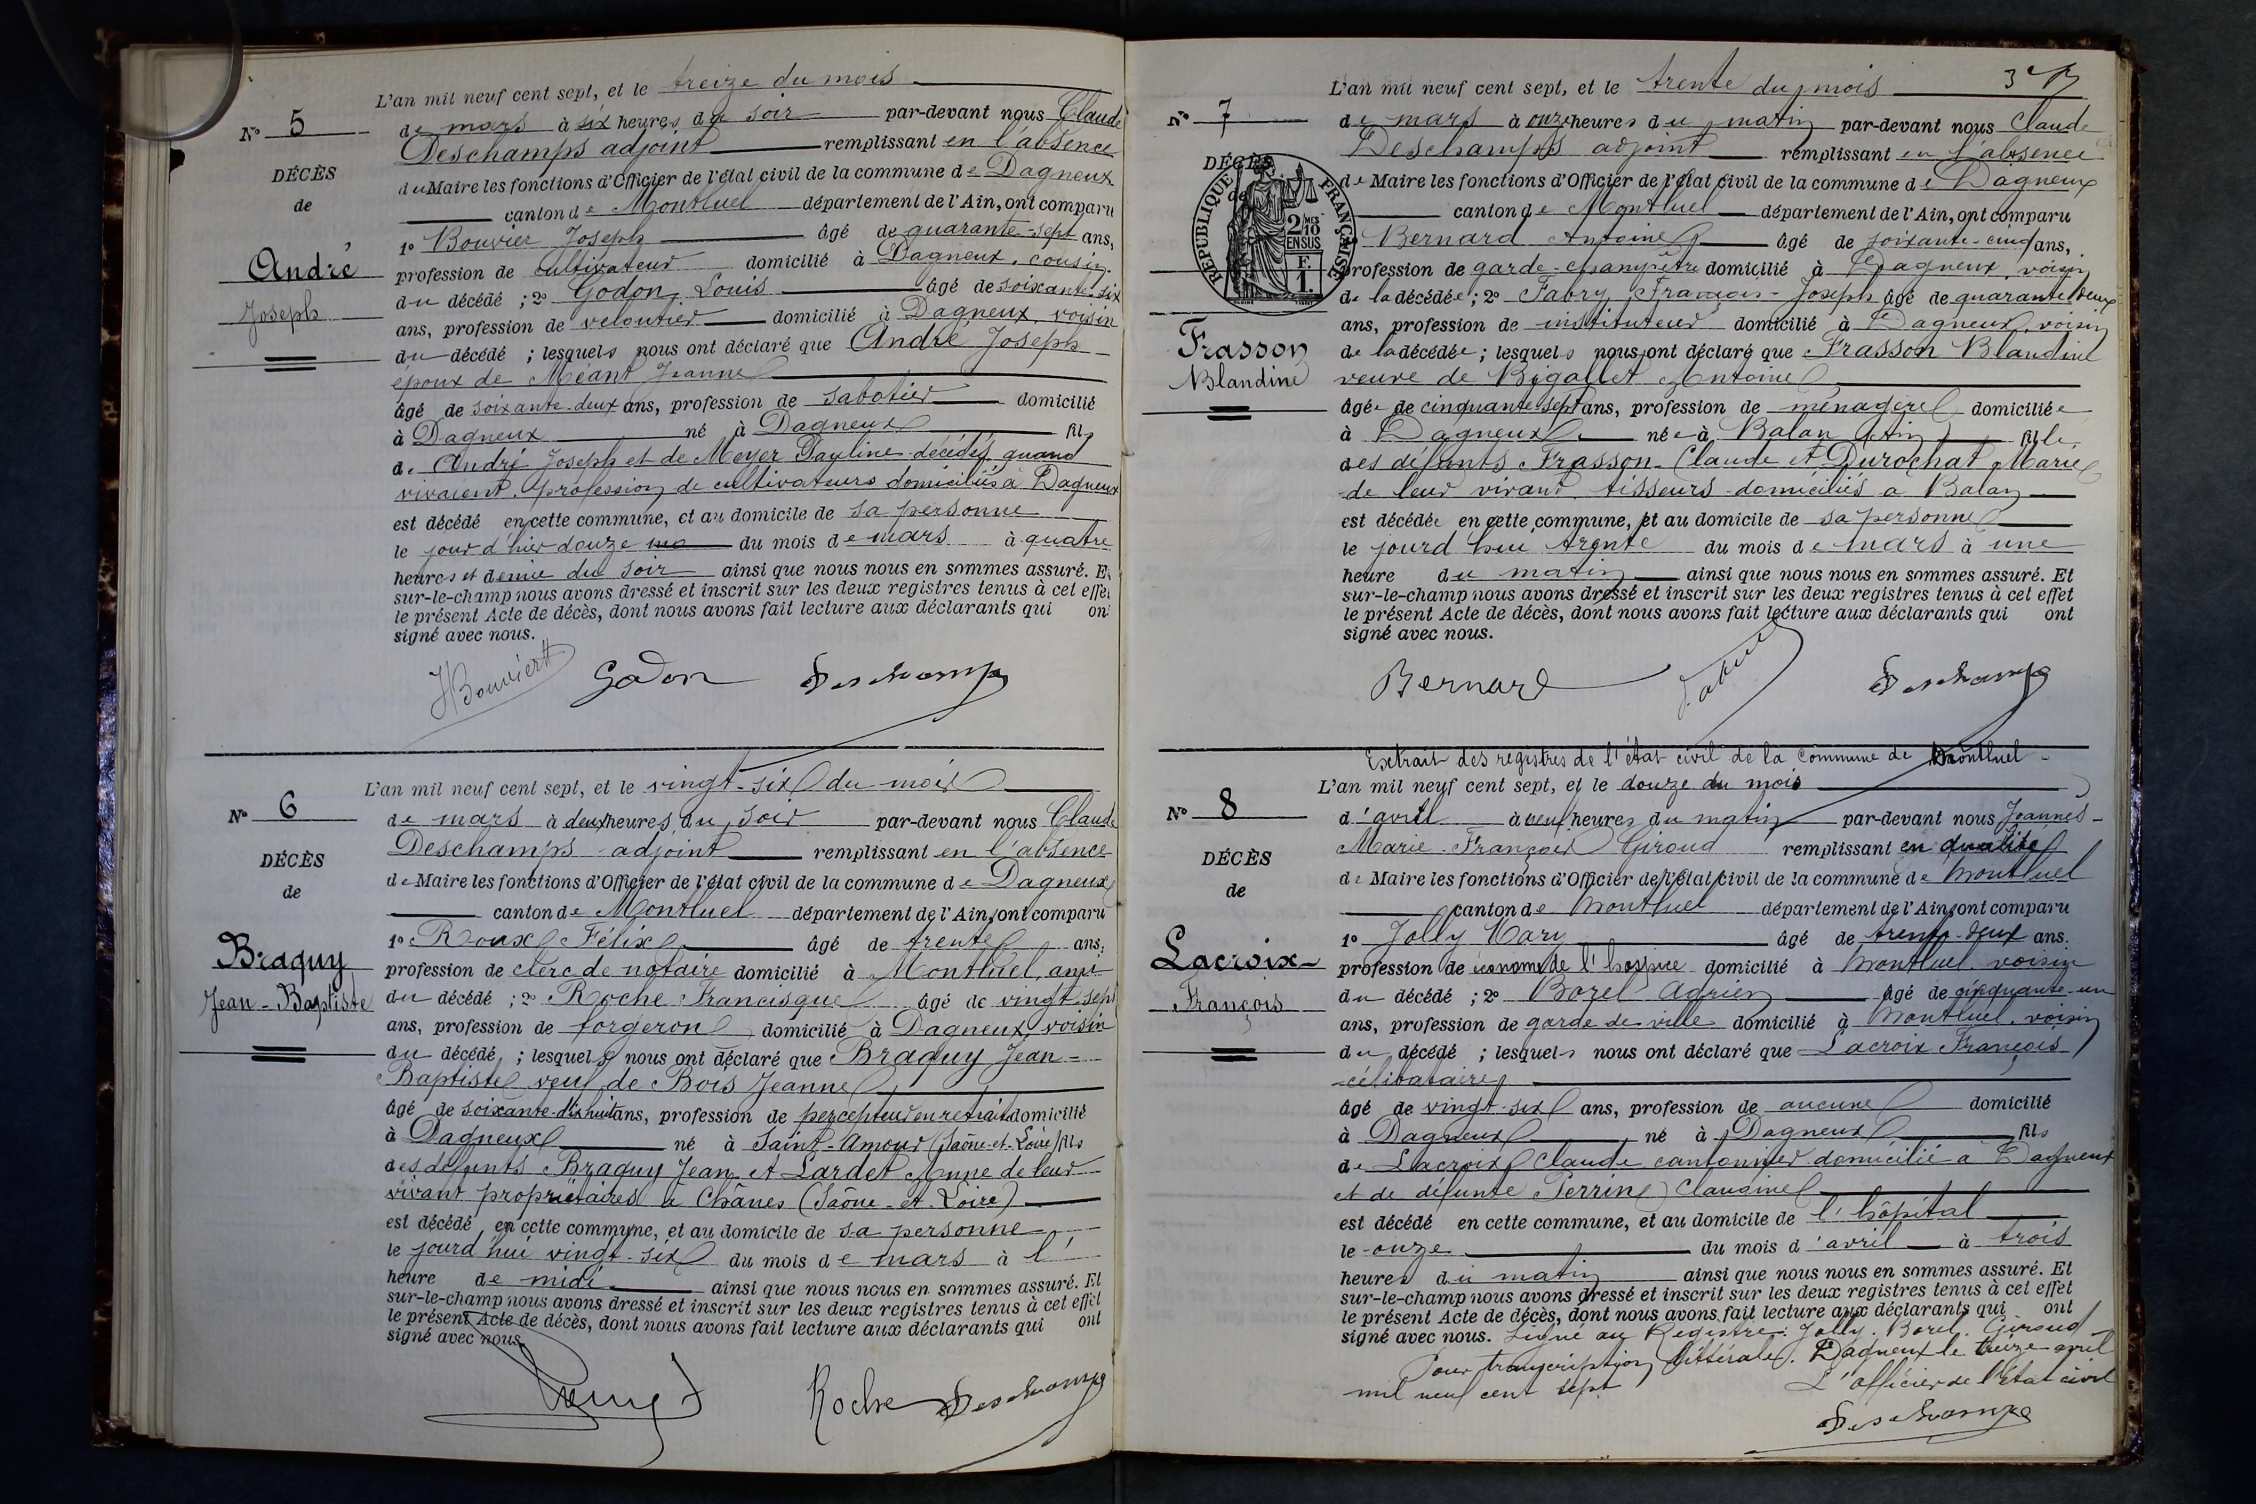 L'an mil neuf cent sept, et le treize du mois
N° 5
de mars à six heures du soir par-devant nous Claude
Deschamps adjoint remplissant en l'absence
DÉCÈS
du Maire les fonctions d'Officier de l'état civil de la commune de Dagneux
de
canton de Montluel département de l'Ain, ont comparu
1° Bouvier Joseph âgé de quarante-sept ans,
André
profession de cultivateur domicilié à Dagneux, cousin
Joseph
du décédé ; 2° Godon Louis âgé de soixante-six
ans, profession de veloutier domicilié à Dagneux, voisin
du décédé ; lesquels nous ont déclaré que André Joseph
époux de Méant Jeanne
âgé de soixante-deux ans, profession de sabotier domicilié
à Dagneux né à Dagneux fils
de André Joseph et de Meyer Pauline décédés quand
vivaient, profession de cultivateurs domiciliés à Dagneux
est décédé en cette commune, et au domicile de sa personne
le jour d'hier douze du mois de mars à quatre
heures et demie du soir ainsi que nous nous en sommes assuré. Et
sur-le-champ nous avons dressé et inscrit sur les deux registres tenus à cet effet
le présent Acte de décès, dont nous avons fait lecture aux déclarants qui ont
signé avec nous.
Bouvier Godon Deschamps
L'an mil neuf cent sept, et le vingt-six du mois
N° 6
de mars à deux heures du soir par-devant nous Claude
Deschamps adjoint remplissant en l'absence
DÉCÈS
de Maire les fonctions d'Officier de l'état civil de la commune de Dagneux
de
canton de Montluel département de l'Ain, ont comparu
1° Roux Félix âgé de trente ans,
Braquy
profession de clerc de notaire domicilié à Montluel, ami
Jean-Baptiste
du décédé ; 2° Roche Francisque âgé de vingt-sept
ans, profession de forgeron domicilié à Dagneux, voisin
du décédé ; lesquels nous ont déclaré que Braquy Jean-
Baptiste veuf de Bois Jeanne
âgé de soixante-dix-huit ans, profession de percepteur en retraite domicilié
à Dagneux né à Saint-Amour (Saône-et-Loire) fils
des défunts Braquy Jean et Lardet Anne de leur
vivant propriétaires à Chânes (Saône-et-Loire)
est décédé en cette commune, et au domicile de sa personne
le jourd'hui vingt-six du mois de mars à l'
heure de midi ainsi que nous nous en sommes assuré. Et
sur-le-champ nous avons dressé et inscrit sur les deux registres tenus à cet effet
le présent Acte de décès, dont nous avons fait lecture aux déclarants qui ont
signé avec nous.
Roche Deschamps
3e
L'an mil neuf cent sept, et le trente du mois
N° 7
de mars à onze heures du matin par-devant nous Claude
Deschamps adjoint remplissant en l'absence
DÉCÈS
de
RÉPUBLIQUE FRANÇAISE
2/10 EN SUS
F. 1.
de Maire les fonctions d'Officier de l'état civil de la commune de Dagneux
canton de Montluel département de l'Ain, ont comparu
Bernard Antoine âgé de soixante-cinq ans,
profession de garde-champêtre domicilié à Dagneux, voisin
de la décédée ; 2° Fabry François-Joseph âgé de quarante-deux
ans, profession de instituteur domicilié à Dagneux, voisin
Frasson
Blandine
de la décédée ; lesquels nous ont déclaré que Frasson Blandine
veuve de Bigallet Antoine
âgée de cinquante-sept ans, profession de ménagère domiciliée
à Dagneux née à Balan (Ain) fille
des défunts Frasson Claude et Durochat Marie
de leur vivant tisseurs domiciliés à Balan
est décédée en cette commune, et au domicile de sa personne
le jourd'hui trente du mois de mars à une
heure du matin ainsi que nous nous en sommes assuré. Et
sur-le-champ nous avons dressé et inscrit sur les deux registres tenus à cet effet
le présent Acte de décès, dont nous avons fait lecture aux déclarants qui ont
signé avec nous.
Bernard Deschamps
Extrait des registres de l'état civil de la commune de Montluel
L'an mil neuf cent sept, et le douze du mois
N° 8
d'avril à neuf heures du matin par-devant nous Joannès-
Marie-François Giroud remplissant en qualité
DÉCÈS
de Maire les fonctions d'Officier de l'état civil de la commune de Montluel
de
canton de Montluel département de l'Ain, ont comparu
1° Jolly Mary âgé de trente-deux ans.
Lacroix
profession de économe de l'hospice domicilié à Montluel, voisin
François
du décédé ; 2° Borel Adrien âgé de cinquante-un
ans, profession de garde de ville domicilié à Montluel, voisin
du décédé ; lesquels nous ont déclaré que Lacroix François
célibataire
âgé de vingt-six ans, profession de aucune domicilié
à Dagneux né à Dagneux fils
de Lacroix Claude cantonnier domicilié à Dagneux
et de défunte Perrin Claudine
est décédé en cette commune, et au domicile de l'hôpital
le onze du mois d'avril à trois
heures du matin ainsi que nous nous en sommes assuré. Et
sur-le-champ nous avons dressé et inscrit sur les deux registres tenus à cet effet
le présent Acte de décès, dont nous avons fait lecture aux déclarants qui ont
signé avec nous. Signé au Registre : Jolly. Borel. Giroud
Pour transcription littérale. Dagneux le treize avril
mil neuf cent sept. L'officier de l'état civil
Deschamps